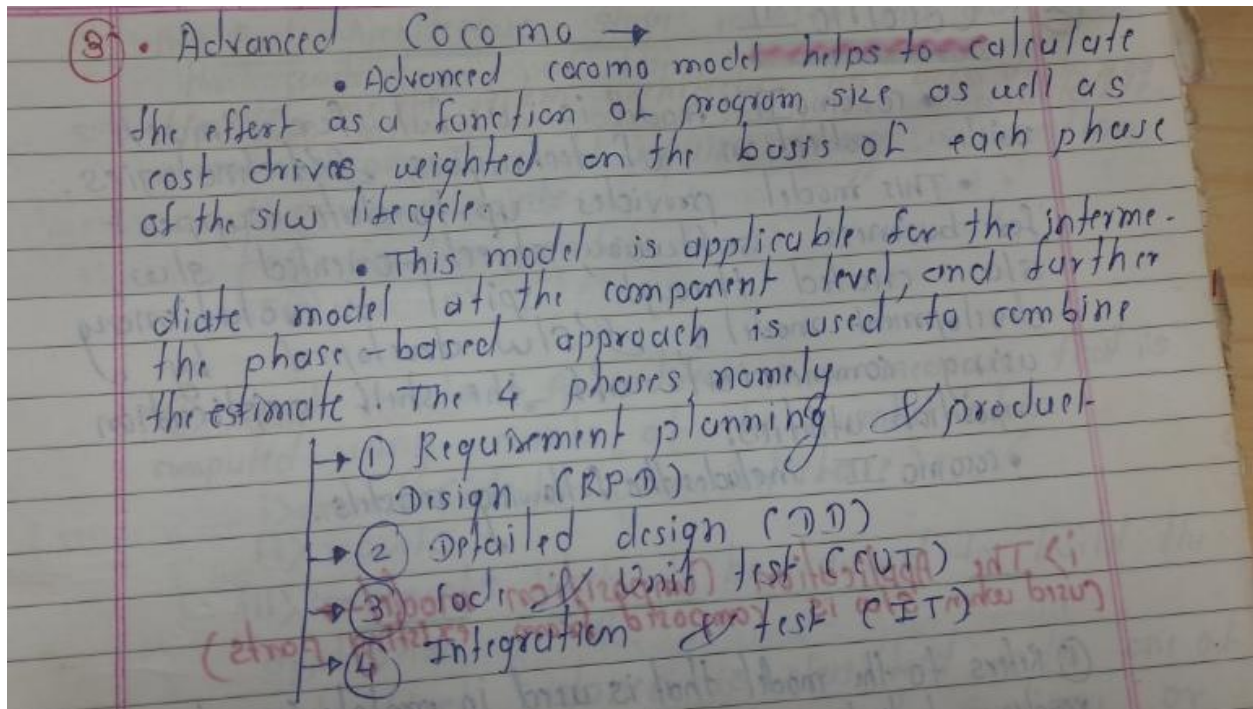 ③ • Advanced Cocomo →
• Advanced cocomo model helps to calculate
the effort as a function of program size as well as
cost drives weighted on the basis of each phase
of the s/w lifecycle.
• This model is applicable for the interme-
diate model at the component level, and further
the phase-based approach is used to combine
the estimate. The 4 phases namely
→ ① Requirement planning & product
Design (RPD)
→ ② Detailed design (DD)
→ ③ code & Unit test (CUT)
→ ④ Integration & test (IT)